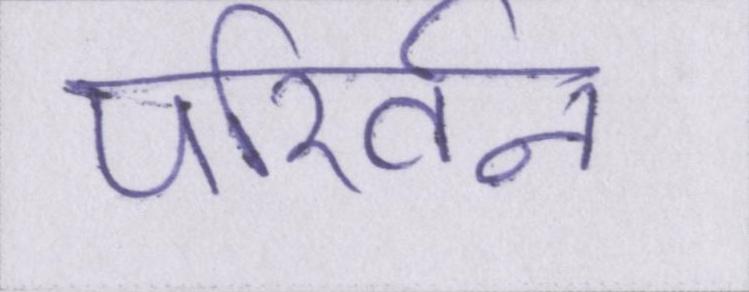 परिर्तन